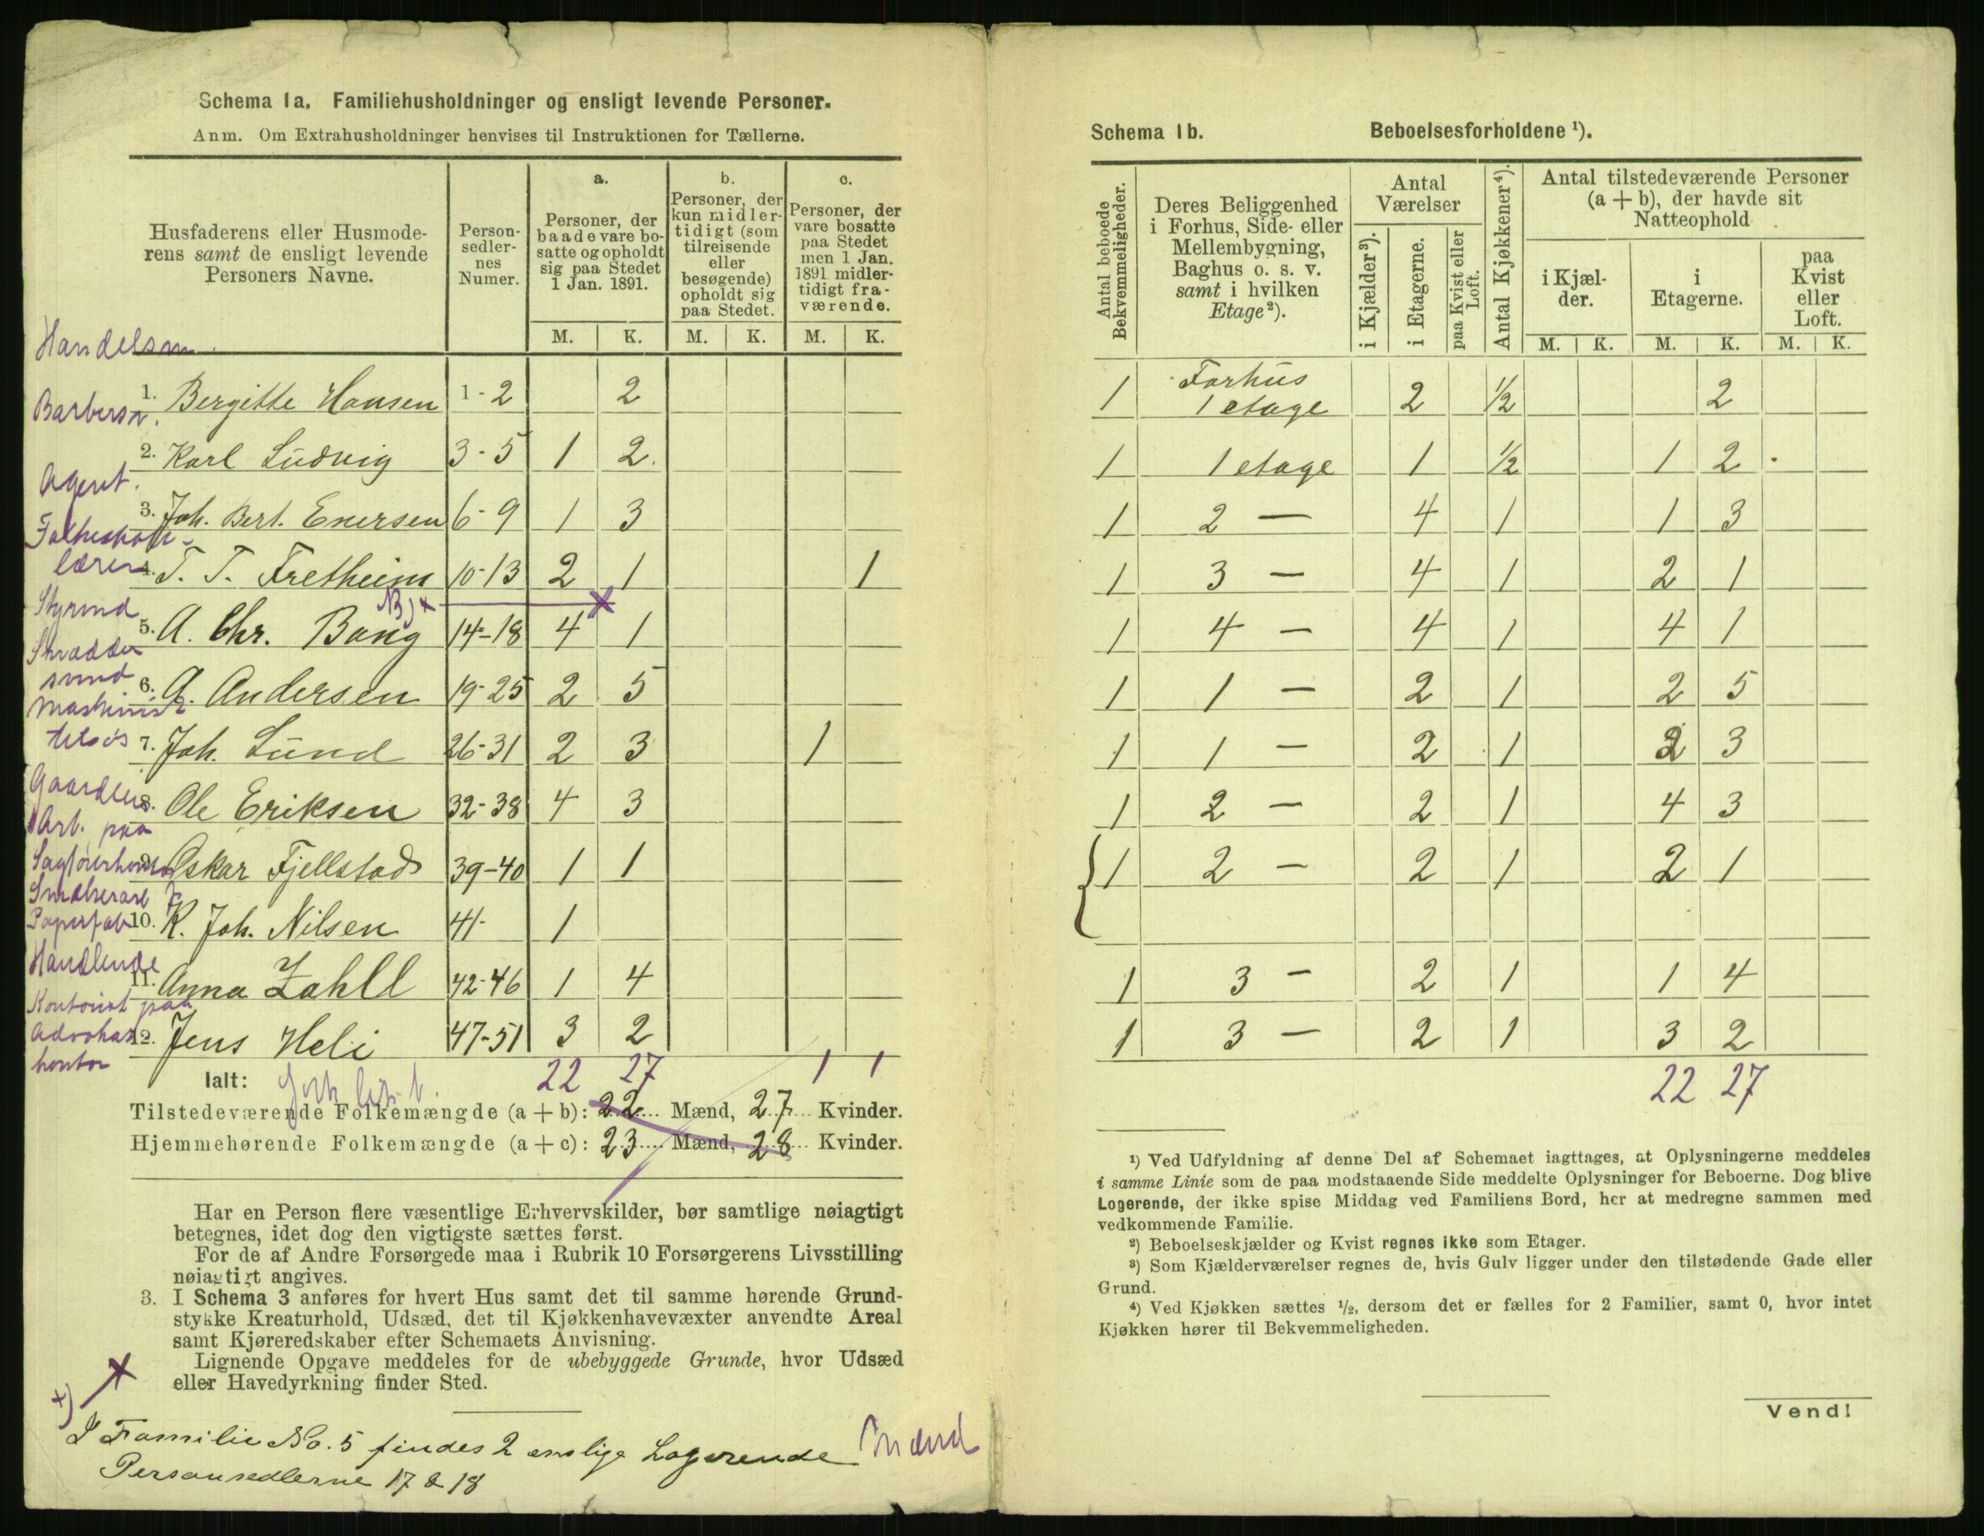 Schema 1a. Familiehusholdninger og ensligt levende Personer.
Anm. Om Extrahusholdninger henvises til Instruktionen for Tællerne.
Husfaderens eller Husmode-
rens samt de ensligt levende
Personers Navne.
Person-
sedler-
nes
Numer.
a.
Personer, der
baade vare bo-
satte og opholdt
sig paa Stedet
1 Jan. 1891.
b.
Personer, der
kun midler-
tidigt (som
tilreisende
eller
besøgende)
opholdt sig
paa Stedet.
c.
Personer, der
vare bosatte
paa Stedet
men 1 Jan.
1891 midler-
tidigt fra-
værende.
M. K. M. K. M. K.
Handelsm.
1. Bergitte Hansen 1-2 2
Barbersv.
2. Karl Ludvig 3-5 1 2
Agent.
3. Joh. Bert. Enersen 6-9 1 3
lærer 4. T. T. Fretheim 10-13 2 1 1
Styrmd NB) x
5. A. Chr. Bang 14-18 4 1
Skrædder
svend 6. A. Andersen 19-25 2 5
Maskinist
7. Joh. Lund 26-31 2 3 1
Gaardeier
8. Ole Eriksen 32-38 4 3
Arb. paa
Sagførerkontor 9. Oskar Fjellstad 39-40 1 1
Papirfab 10. K. Joh. Nilsen 41- 1
Handlende
11. Anna Zahll 42-46 1 4
Kontorist paa
Advokat 12. Jens Heli 47-51 3 2
kontor
Ialt: 22 27 1 1
Tilstedeværende Folkemængde (a + b): 22 Mænd, 27 Kvinder.
Hjemmehørende Folkemængde (a + c): 23 Mænd, 28 Kvinder.
Har en Person flere væsentlige Erhvervskilder, bør samtlige nøiagtigt
betegnes, idet dog den vigtigste sættes først.
For de af Andre Forsørgede maa i Rubrik 10 Forsørgerens Livsstilling
nøiagtigt angives.
3. I Schema 3 anføres for hvert Hus samt det til samme hørende Grund-
stykke Kreaturhold, Udsæd, det til Kjøkkenhavevæxter anvendte Areal
samt Kjøreredskaber efter Schemaets Anvisning.
Lignende Opgave meddeles for de ubebyggede Grunde, hvor Udsæd
eller Havedyrkning finder Sted.
x)
I Familie No. 5 findes 2 enslige Logerende Mænd
Personsedlerne 17 & 18
Schema 1b. Beboelsesforholdene ¹).
Antal beboede
Bekvemmeligheder.
Deres Beliggenhed
i Forhus, Side- eller
Mellembygning,
Baghus o. s. v.
samt i hvilken
Etage ²).
Antal
Værelser
i Kjælder ³).
i Etagerne.
paa Kvist eller
Loft.
Antal Kjøkkener ⁴).
Antal tilstedeværende Personer
(a + b), der havde sit
Natteophold
i Kjæl-
der.
i
Etagerne.
paa
Kvist
eller
Loft.
M. K. M. K. M. K.
Forhus
1 1 etage 2 ½ 2
1 1 etage 1 ½ 1 2
1 2 — 4 1 1 3
1 3 — 4 1 2 1
1 4 — 4 1 4 1
1 1 — 2 1 2 5
1 1 — 2 1 2 3
1 2 — 2 1 4 3
1 2 — 2 1 2 1
1 3 — 2 1 1 4
1 3 — 2 1 3 2
22 27
¹) Ved Udfyldning af denne Del af Schemaet iagttages, at Oplysningerne meddeles
i samme Linie som de paa modstaaende Side meddelte Oplysninger for Beboerne. Dog blive
Logerende, der ikke spise Middag ved Familiens Bord, her at medregne sammen med
vedkommende Familie.
²) Beboelseskjælder og Kvist regnes ikke som Etager.
³) Som Kjælderværelser regnes de, hvis Gulv ligger under den tilstødende Gade eller
Grund.
⁴) Ved Kjøkken sættes ½, dersom det er fælles for 2 Familier, samt 0, hvor intet
Kjøkken hører til Bekvemmeligheden.
Vend!